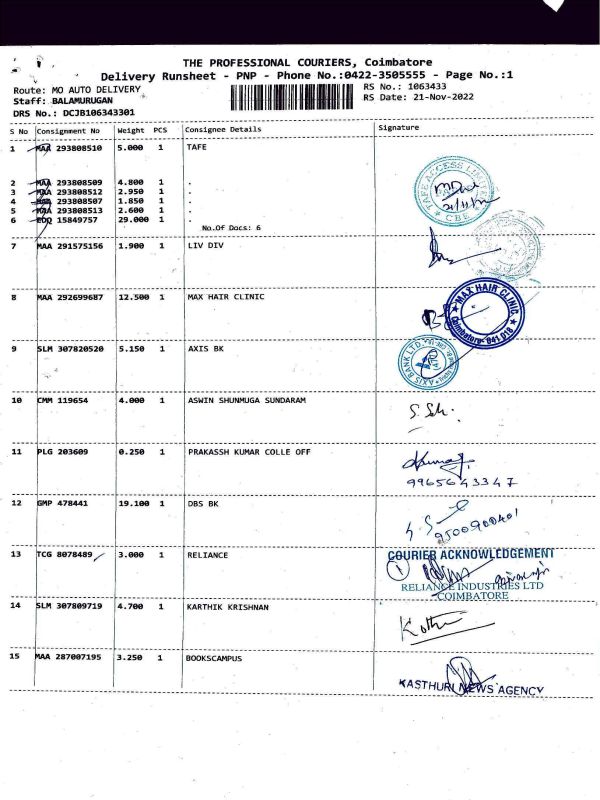 THE PROFESSIONAL COURIERS, Coimbatore
Delivery Runsheet - PNP - Phone No.:0422-3505555 - Page No.:1
Route: MO AUTO DELIVERY
RS No.: 1063433
Staff: BALAMURUGAN
RS Date: 21-Nov-2022
DRS No.: DCJB106343301
S No Consignment No Weight PCS Consignee Details Signature
1 MAA 293808510 5.000 1 TAFE
2 MAA 293808509 4.800 1 .
3 MAA 293808512 2.950 1 .
4 MAA 293808507 1.850 1 .
5 MAA 293808513 2.600 1 .
6 EDQ 15849757 29.000 1 .
No.Of Docs: 6
TAFE ACCESS LIMITED
CBE
7 MAA 291575156 1.900 1 LIV DIV
8 MAA 292699687 12.500 1 MAX HAIR CLINIC
MAX HAIR CLINIC
Coimbatore - 641 018
9 SLM 307820520 5.150 1 AXIS BK
AXIS BANK LTD.
10 CMM 119654 4.000 1 ASWIN SHUNMUGA SUNDARAM
11 PLG 203609 0.250 1 PRAKASSH KUMAR COLLE OFF
9965643347
12 GMP 478441 19.100 1 DBS BK
9500900401
13 TCG 8078489 3.000 1 RELIANCE
COURIER ACKNOWLEDGEMENT
1
RELIANCE INDUSTRIES LTD
COIMBATORE
14 SLM 307809719 4.700 1 KARTHIK KRISHNAN
15 MAA 287007195 3.250 1 BOOKSCAMPUS
KASTHURI NEWS AGENCY